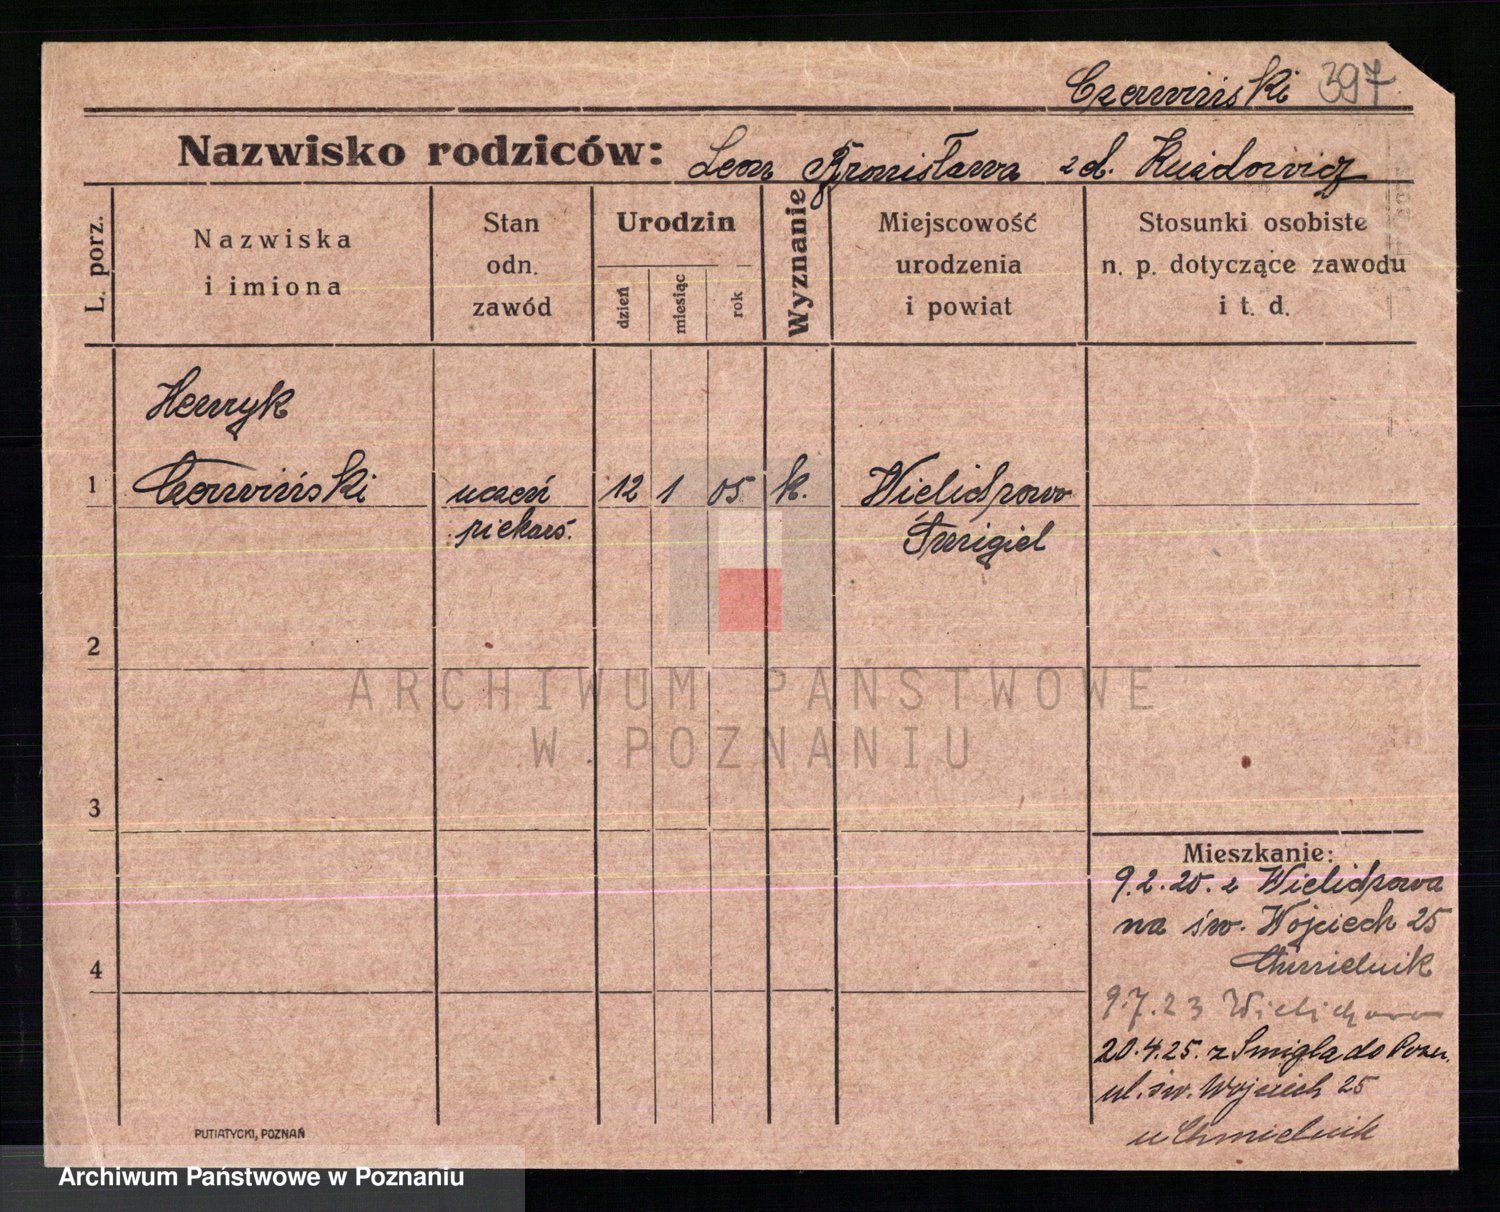 Czerwiński 397
Nazwisko rodziców: Leon Bronisława zd. Kuźdowicz
L. porz.
Nazwiska
i imiona
Stan
odn.
zawód
Urodzin
dzień
miesiąc
rok
Wyznanie
Miejscowość
urodzenia
i powiat
Stosunki osobiste
n. p. dotyczące zawodu
i t. d.
Henryk
1 Czerwiński uczeń 12 1 05 k. Wielichowo
piekarś. Śmigiel
2
ARCHIWUM PAŃSTWOWE
W POZNANIU
3
Mieszkanie:
9.2.20. z Wielichowa
na św. Wojciech 25
4
Chmielnik
9.7.23 Wielichowo
20.4.25. z Śmigla do Pozn.
ul. św. Wojciech 25
u Chmielnik
PUTIATYCKI, POZNAŃ
Archiwum Państwowe w Poznaniu